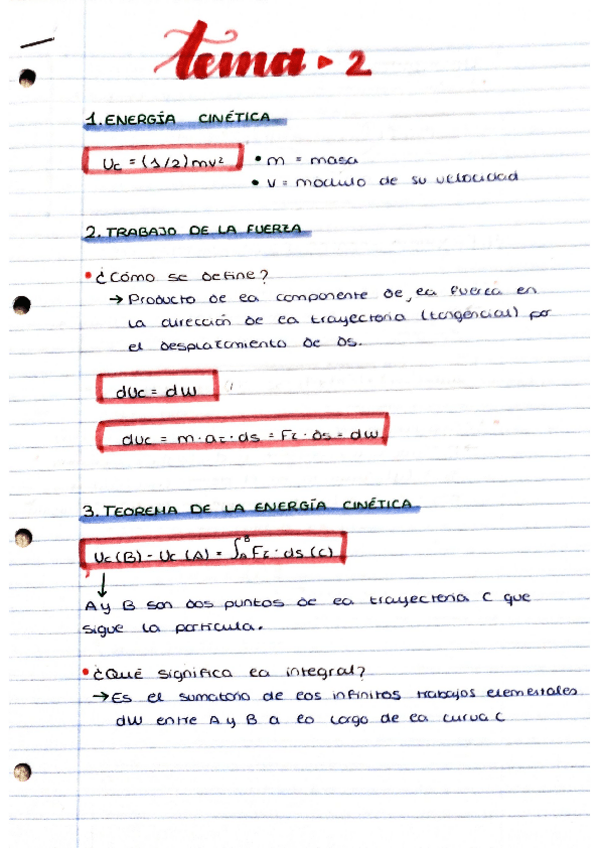 tema - 2
1. ENERGÍA CINÉTICA
Uc = (1/2) mv² • m = masa
• v = modulo de su velocidad
2. TRABAJO DE LA FUERZA
• ¿Cómo se define?
→ Producto de la componente de la fuerza en
la dirección de la trayectoria (tangencial) por
el desplazamiento de ds.
dUc = dW
dUc = m · at · ds = Ft · ds = dW
3. TEOREMA DE LA ENERGÍA CINÉTICA
Uc (B) - Uc (A) = ∫ᴬᴮ Ft · ds (C)
A y B son dos puntos de la trayectoria C que
sigue la partícula.
• ¿Qué significa la integral?
→ Es el sumatorio de los infinitos trabajos elementales
dW entre A y B a lo largo de la curva C